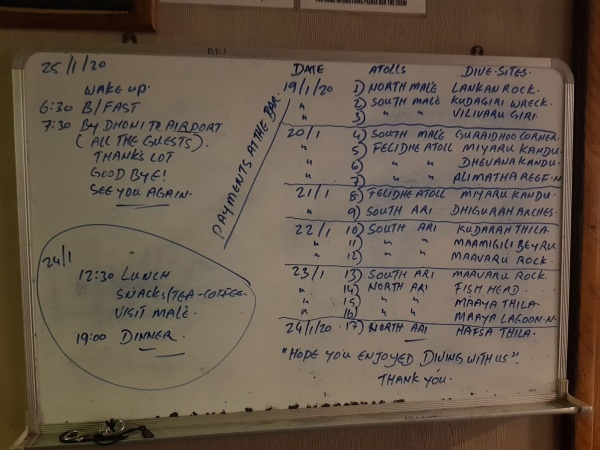 25/1/20
WAKE UP.
6:30 B/FAST
7:30 BY DHONI TO AIRPORT
(ALL THE GUESTS).
THANKS LOT
GOOD BYE!
SEE YOU AGAIN.
24/1
12:30 LUNCH
SNACKS/TEA-COFFEE.
VISIT MALÉ.
19:00 DINNER.
PAYMENTS AT THE BAR.
DATE ATOLLS DIVE-SITES.
19/1/20 1) NORTH MALÉ LANKAN ROCK.
" 2) SOUTH MALÉ KUDAGIRI WRECK.
" 3) " " VILIVARU GIRI.
20/1 4) SOUTH MALÉ GURAIDHOO CORNER.
" 5) FELIDHE ATOLL MIYARU KANDU.
" 6) " " DHEVANA KANDU.
" 7) " " ALIMATHA REEF-N
21/1 8) FELIDHE ATOLL MIYARU KANDU.
" 9) SOUTH ARI DHIGURAH ARCHES.
22/1 10) SOUTH ARI KUDARAH THILA.
" 11) " " MAAMIGILI BEYRU
" 12) " " MAAVARU ROCK.
23/1 13) SOUTH ARI MAAVARU ROCK.
" 14) NORTH ARI FISH HEAD.
" 15) " " MAAYA THILA.
" 16) " " MAAYA LAGOON-N
24/1/20 17) NORTH ARI HAFSA THILA.
"HOPE YOU ENJOYED DIVING WITH US".
THANK YOU.